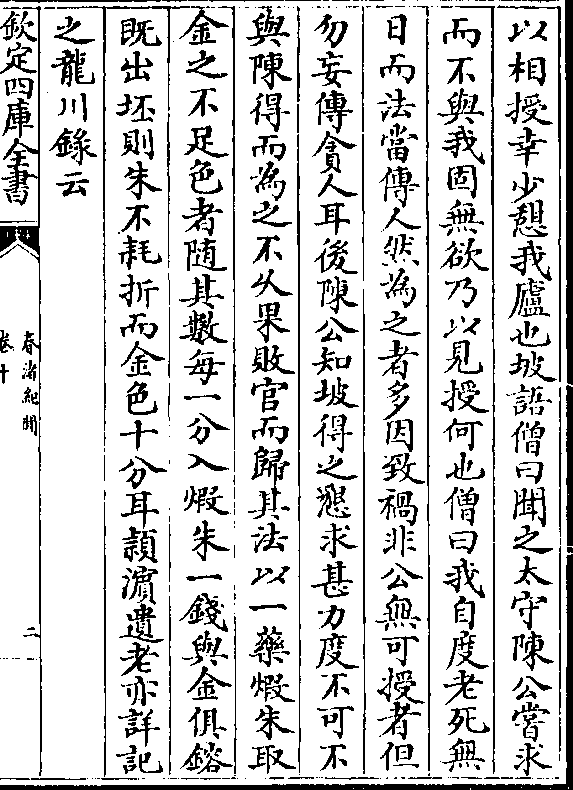 以相授幸少憇我廬也坡語僧曰聞之太守陳公嘗求
而不與我固無欲乃以見授何也僧曰我自度老死無
日而法當傳人然為之者多因致禍非公無可授者但
勿妄傳貪人耳後陳公知坡得之懇求甚力度不可不
與陳得而為之不乆果敗官而歸其法以一藥煅朱取
金之不足色者隨其數每一分入煅朱一錢與金俱鎔
既出坯則朱不耗折而金色十分耳頴濵遺老亦詳記
之龍川錄云
欽定四庫全書
春渚紀聞
卷十
二